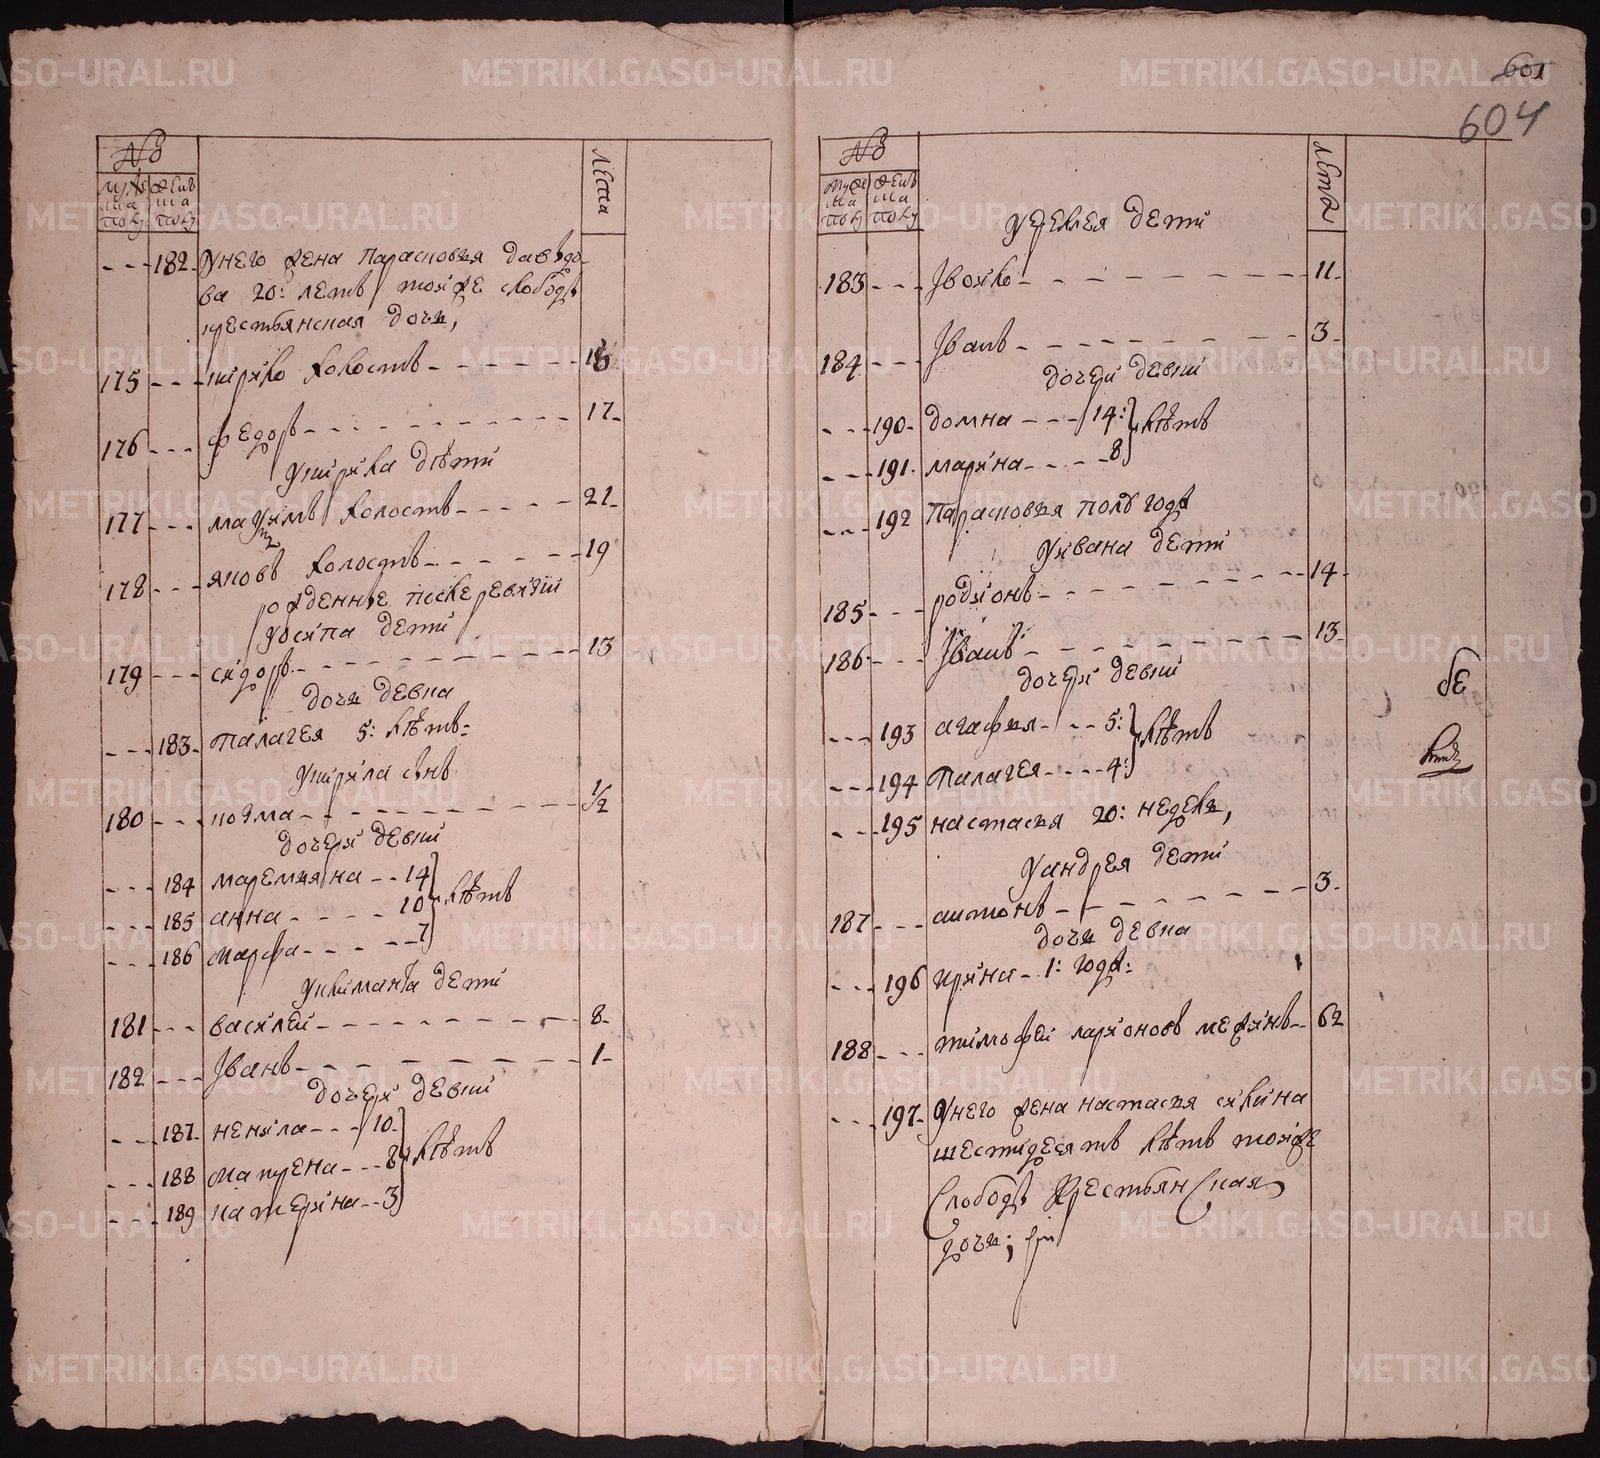 601
604
№
муже
ска
полу
женъ
ска
полу
лета
182 унего жена парасковья давыдо
ва 20: летъ тояже слободы
крестьянская дочь,
175 кирило холостъ 18
176 федоръ 17
укирила дѣти
177 максимъ холостъ 21
178 яковъ холостъ 19
рожденные после ревизии
уосипа дети
179 сидоръ 13
дочь девка
183 палагея 5: лѣтъ
укирила сынъ
180 козма 1/2
дочери девки
184 маремьяна 14
185 анна 10 лѣтъ
186 марфа 7
уклиманта дети
181 василей 8
182 Иванъ 1
дочери девки
187 ненила 10
188 макрена 8 лѣтъ
189 катерина 3
№
муже
ска
полу
женъ
ска
полу
лета
уеремея дети
183 11
184 Иванъ 3
дочери девки
190 домна 14: лѣтъ
191 марина 8
192 парасковья полъ года
уивана дети
185 родионъ 14
186 Иванъ 13
дочери девки
193 агафья 5: лѣтъ
194 палагея 4:
195 настасья 20: недель,
уандрея дети
187 антонъ 3
дочь девка
196 ирина 1: года:
188 тимофей ларионовъ 62
197 унего жена настасья
шестидесятъ лѣтъ тояже
Слободы Крестьянская
дочь;
бе